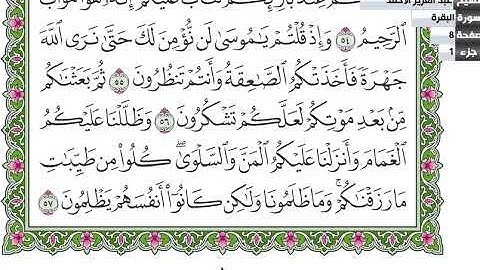 عبد العزيز الأحمد
سورة البقرة
صفحة 8
جزء 1
ٱلرَّحِيمُ ٥٤ وَإِذْ قُلْتُمْ يَٰمُوسَىٰ لَن نُّؤْمِنَ لَكَ حَتَّىٰ نَرَى ٱللَّهَ
جَهْرَةً فَأَخَذَتْكُمُ ٱلصَّٰعِقَةُ وَأَنتُمْ تَنظُرُونَ ٥٥ ثُمَّ بَعَثْنَٰكُم
مِّنۢ بَعْدِ مَوْتِكُمْ لَعَلَّكُمْ تَشْكُرُونَ ٥٦ وَظَلَّلْنَا عَلَيْكُمُ
ٱلْغَمَامَ وَأَنزَلْنَا عَلَيْكُمُ ٱلْمَنَّ وَٱلسَّلْوَىٰ ۖ كُلُوا۟ مِن طَيِّبَٰتِ
مَا رَزَقْنَٰكُمْ ۖ وَمَا ظَلَمُونَا وَلَٰكِن كَانُوٓا۟ أَنفُسَهُمْ يَظْلِمُونَ ٥٧